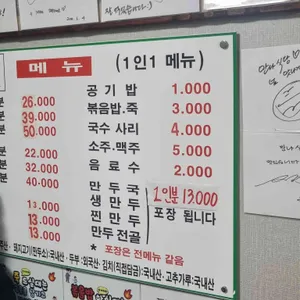 메 뉴 (1인 1 메뉴)
분 26.000 공 기 밥 1.000
분 39.000 볶음밥.죽 3.000
분 50.000 국수 사리 4.000
분 22.000 소주.맥주 5.000
분 32.000 음 료 수 2.000
분 40.000
만 두 국 1인분 13.000
13.000 생 만 두
13.000 찐 만 두 포장 됩니다
13.000 만두 전골
* 포장은 전메뉴 같음
주산: 돼지고기(만두소):국내산·두부:외국산·김치(직접담금):국내산·고추가루:국내산